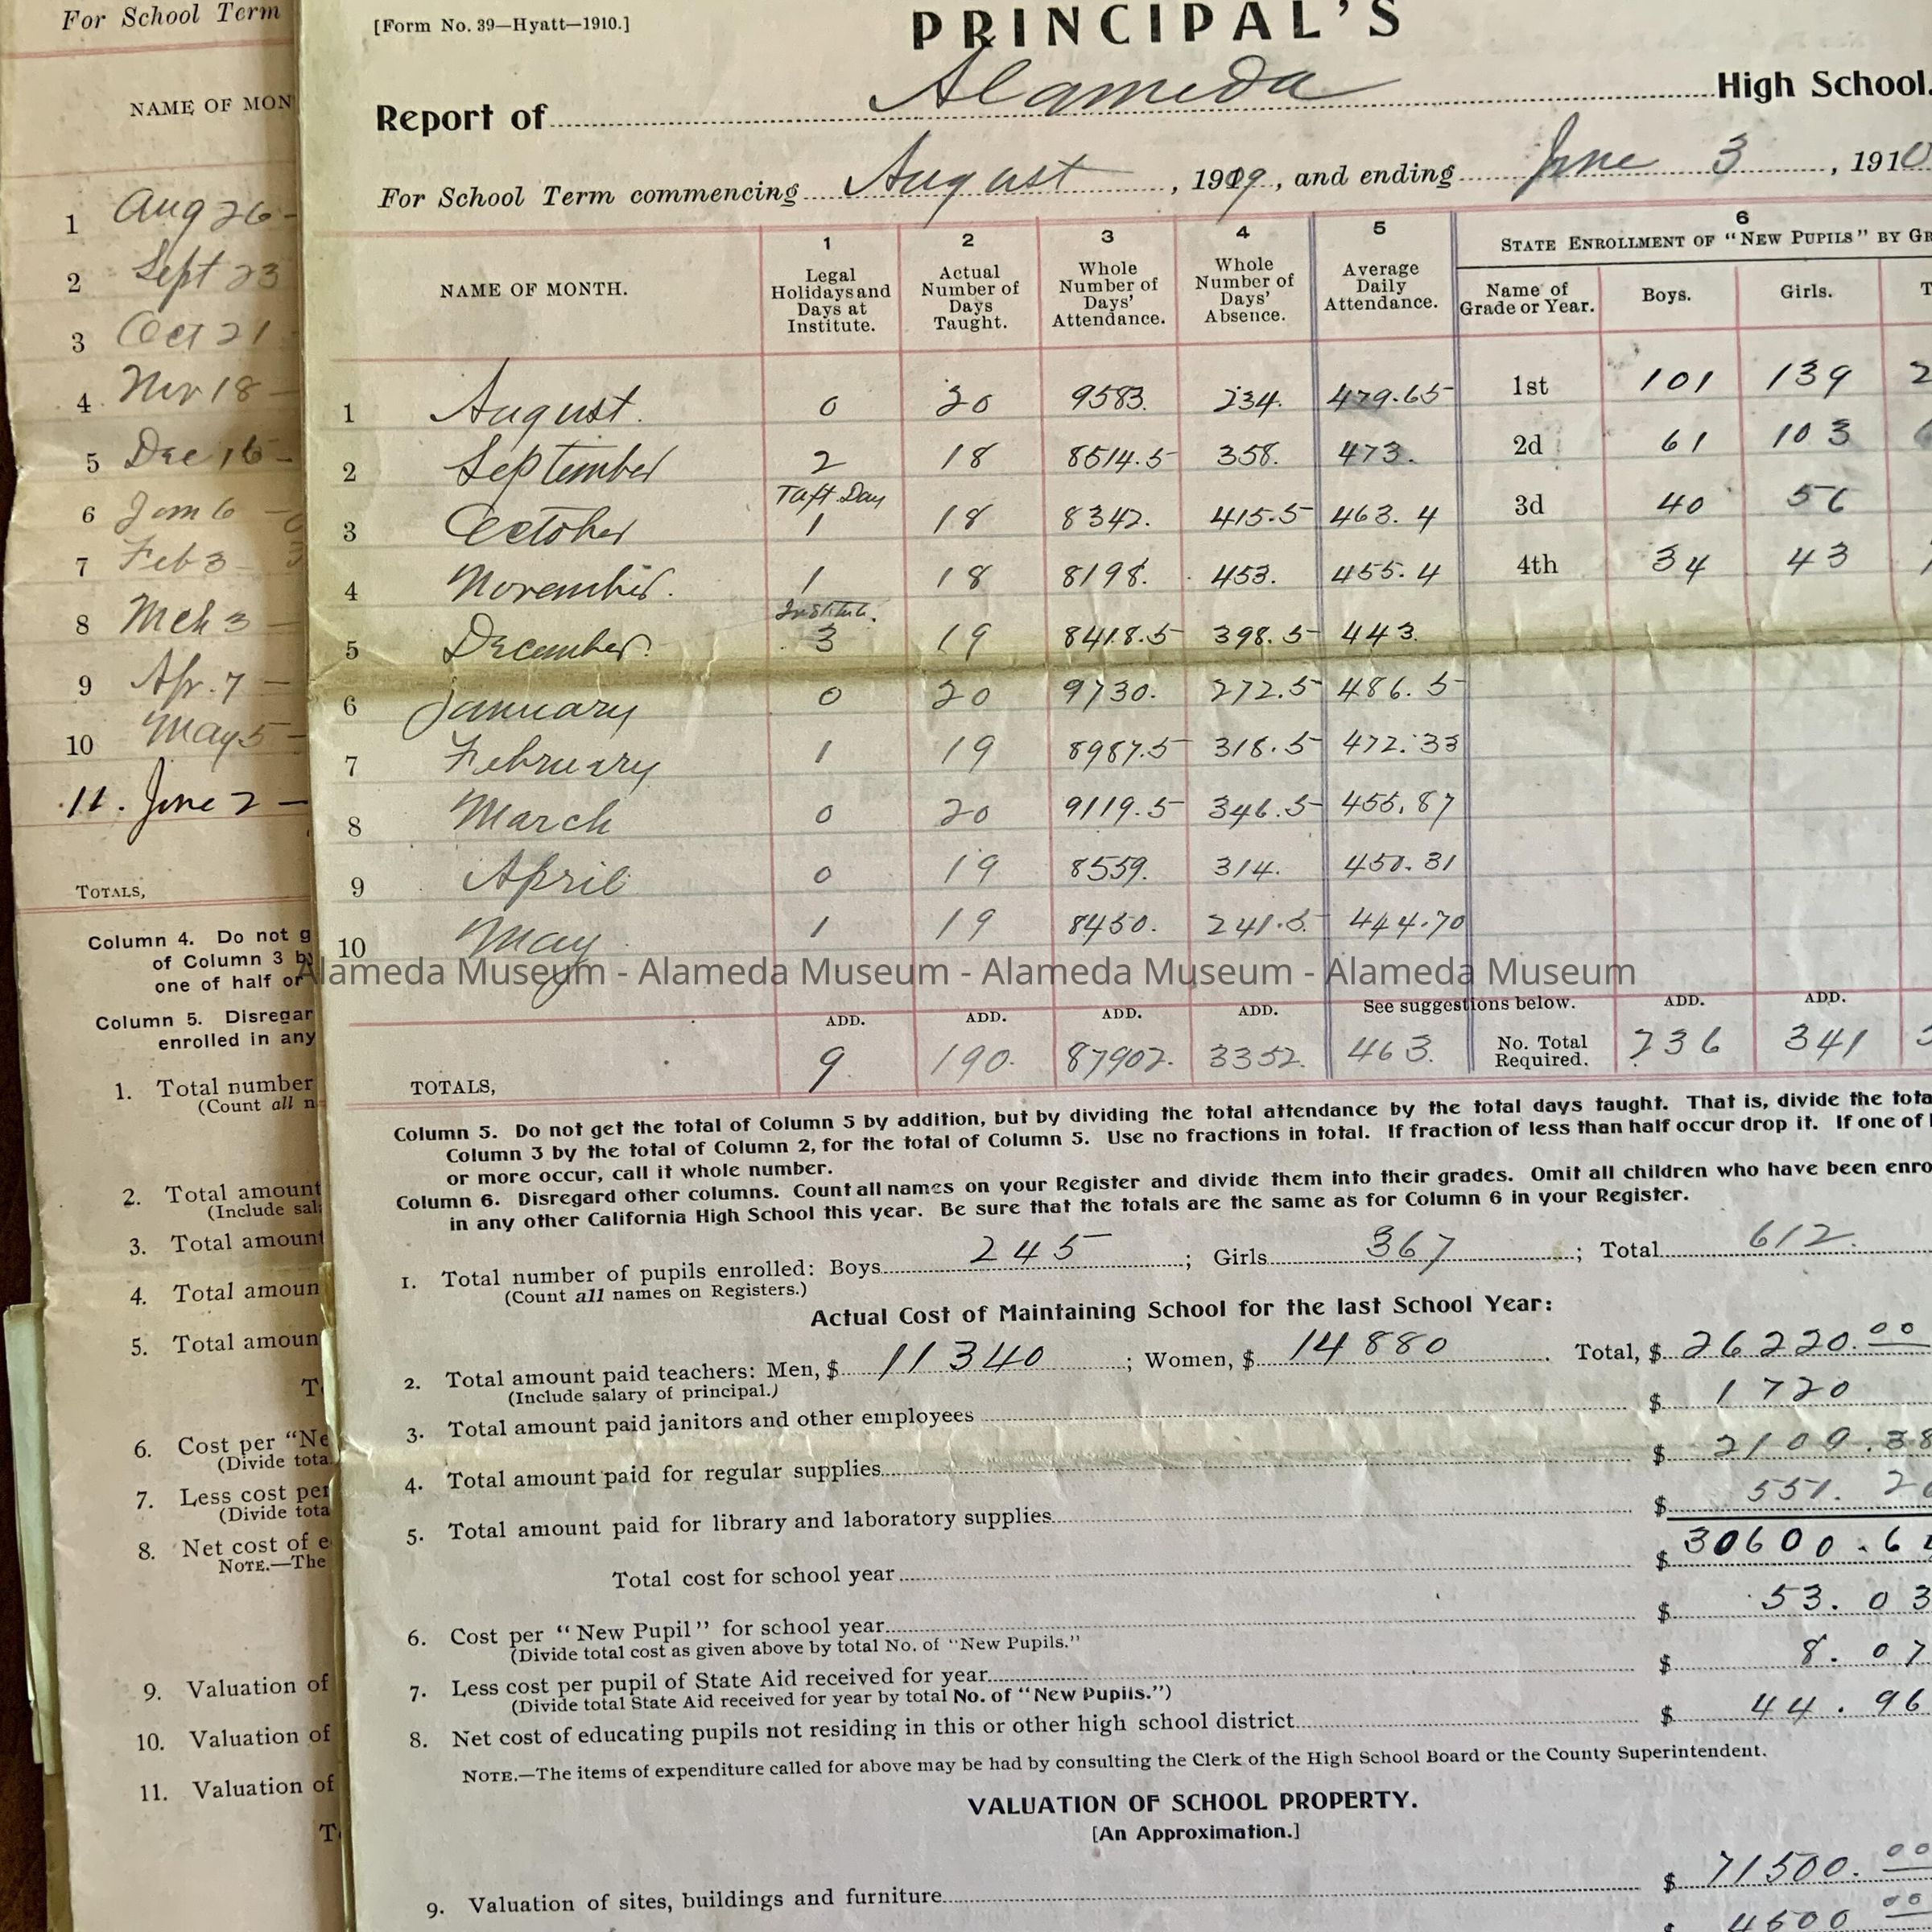 For School Term
NAME OF MON
1 Aug 26 -
2 Sept 23
3 Oct 21
4 Nov 18 -
5 Dec 16 -
6 Jan 6 -
7 Feb 3 -
8 Mch 3 -
9 Apr. 7 -
10 May 5 -
11. June 2 -
TOTALS,
Column 4. Do not g
of Column 3 b
one of half or
Column 5. Disregar
enrolled in any
1. Total number
(Count all n
2. Total amount
(Include sal
3. Total amount
4. Total amoun
5. Total amoun
T
6. Cost per "Ne
(Divide tota
7. Less cost per
(Divide tota
8. Net cost of e
NOTE.—The
9. Valuation of
10. Valuation of
11. Valuation of
T
[Form No. 39—Hyatt—1910.]
PRINCIPAL'S
Report of Alameda High School.
For School Term commencing August, 1909, and ending June 3, 1910
NAME OF MONTH.
1 Legal Holidays and Days at Institute.
2 Actual Number of Days Taught.
3 Whole Number of Days' Attendance.
4 Whole Number of Days' Absence.
5 Average Daily Attendance.
6 STATE ENROLLMENT OF "NEW PUPILS" BY GR
Name of Grade or Year. Boys. Girls. T
1 August. 0 20 9583. 234. 479.65 1st 101 139 2
2 September 2 18 8514.5 358. 473. 2d 61 103
Taft Day
3 October 1 18 8342. 415.5 463.4 3d 40 56
4 November. 1 18 8198. 453. 455.4 4th 34 43
Institute.
5 December. 3 19 8418.5 398.5 443.
6 January 0 20 9730. 272.5 486.5
7 February 1 19 8987.5 318.5 472.33
8 March 0 20 9119.5 346.5 455.87
9 April 0 19 8559. 314. 450.31
10 May 1 19 8450. 241.5 444.70
Alameda Museum - Alameda Museum - Alameda Museum - Alameda Museum
ADD. ADD. ADD. ADD. See suggestions below. ADD. ADD.
TOTALS, 9 190. 87902. 3352. 463. No. Total Required. 236 341
Column 5. Do not get the total of Column 5 by addition, but by dividing the total attendance by the total days taught. That is, divide the tota
Column 3 by the total of Column 2, for the total of Column 5. Use no fractions in total. If fraction of less than half occur drop it. If one of
or more occur, call it whole number.
Column 6. Disregard other columns. Count all names on your Register and divide them into their grades. Omit all children who have been enro
in any other California High School this year. Be sure that the totals are the same as for Column 6 in your Register.
1. Total number of pupils enrolled: Boys 245; Girls 367; Total 612.
(Count all names on Registers.)
Actual Cost of Maintaining School for the last School Year:
2. Total amount paid teachers: Men, $ 11340; Women, $ 14880. Total, $ 26220.00
(Include salary of principal.)
3. Total amount paid janitors and other employees $ 1720
4. Total amount paid for regular supplies $ 2109.38
5. Total amount paid for library and laboratory supplies $ 551.2
Total cost for school year $ 30600.6
6. Cost per "New Pupil" for school year $ 53.03
(Divide total cost as given above by total No. of "New Pupils."
7. Less cost per pupil of State Aid received for year $ 8.07
(Divide total State Aid received for year by total No. of "New Pupils.")
8. Net cost of educating pupils not residing in this or other high school district $ 44.96
NOTE.—The items of expenditure called for above may be had by consulting the Clerk of the High School Board or the County Superintendent.
VALUATION OF SCHOOL PROPERTY.
[An Approximation.]
9. Valuation of sites, buildings and furniture $ 71500.00
$ 4600 00